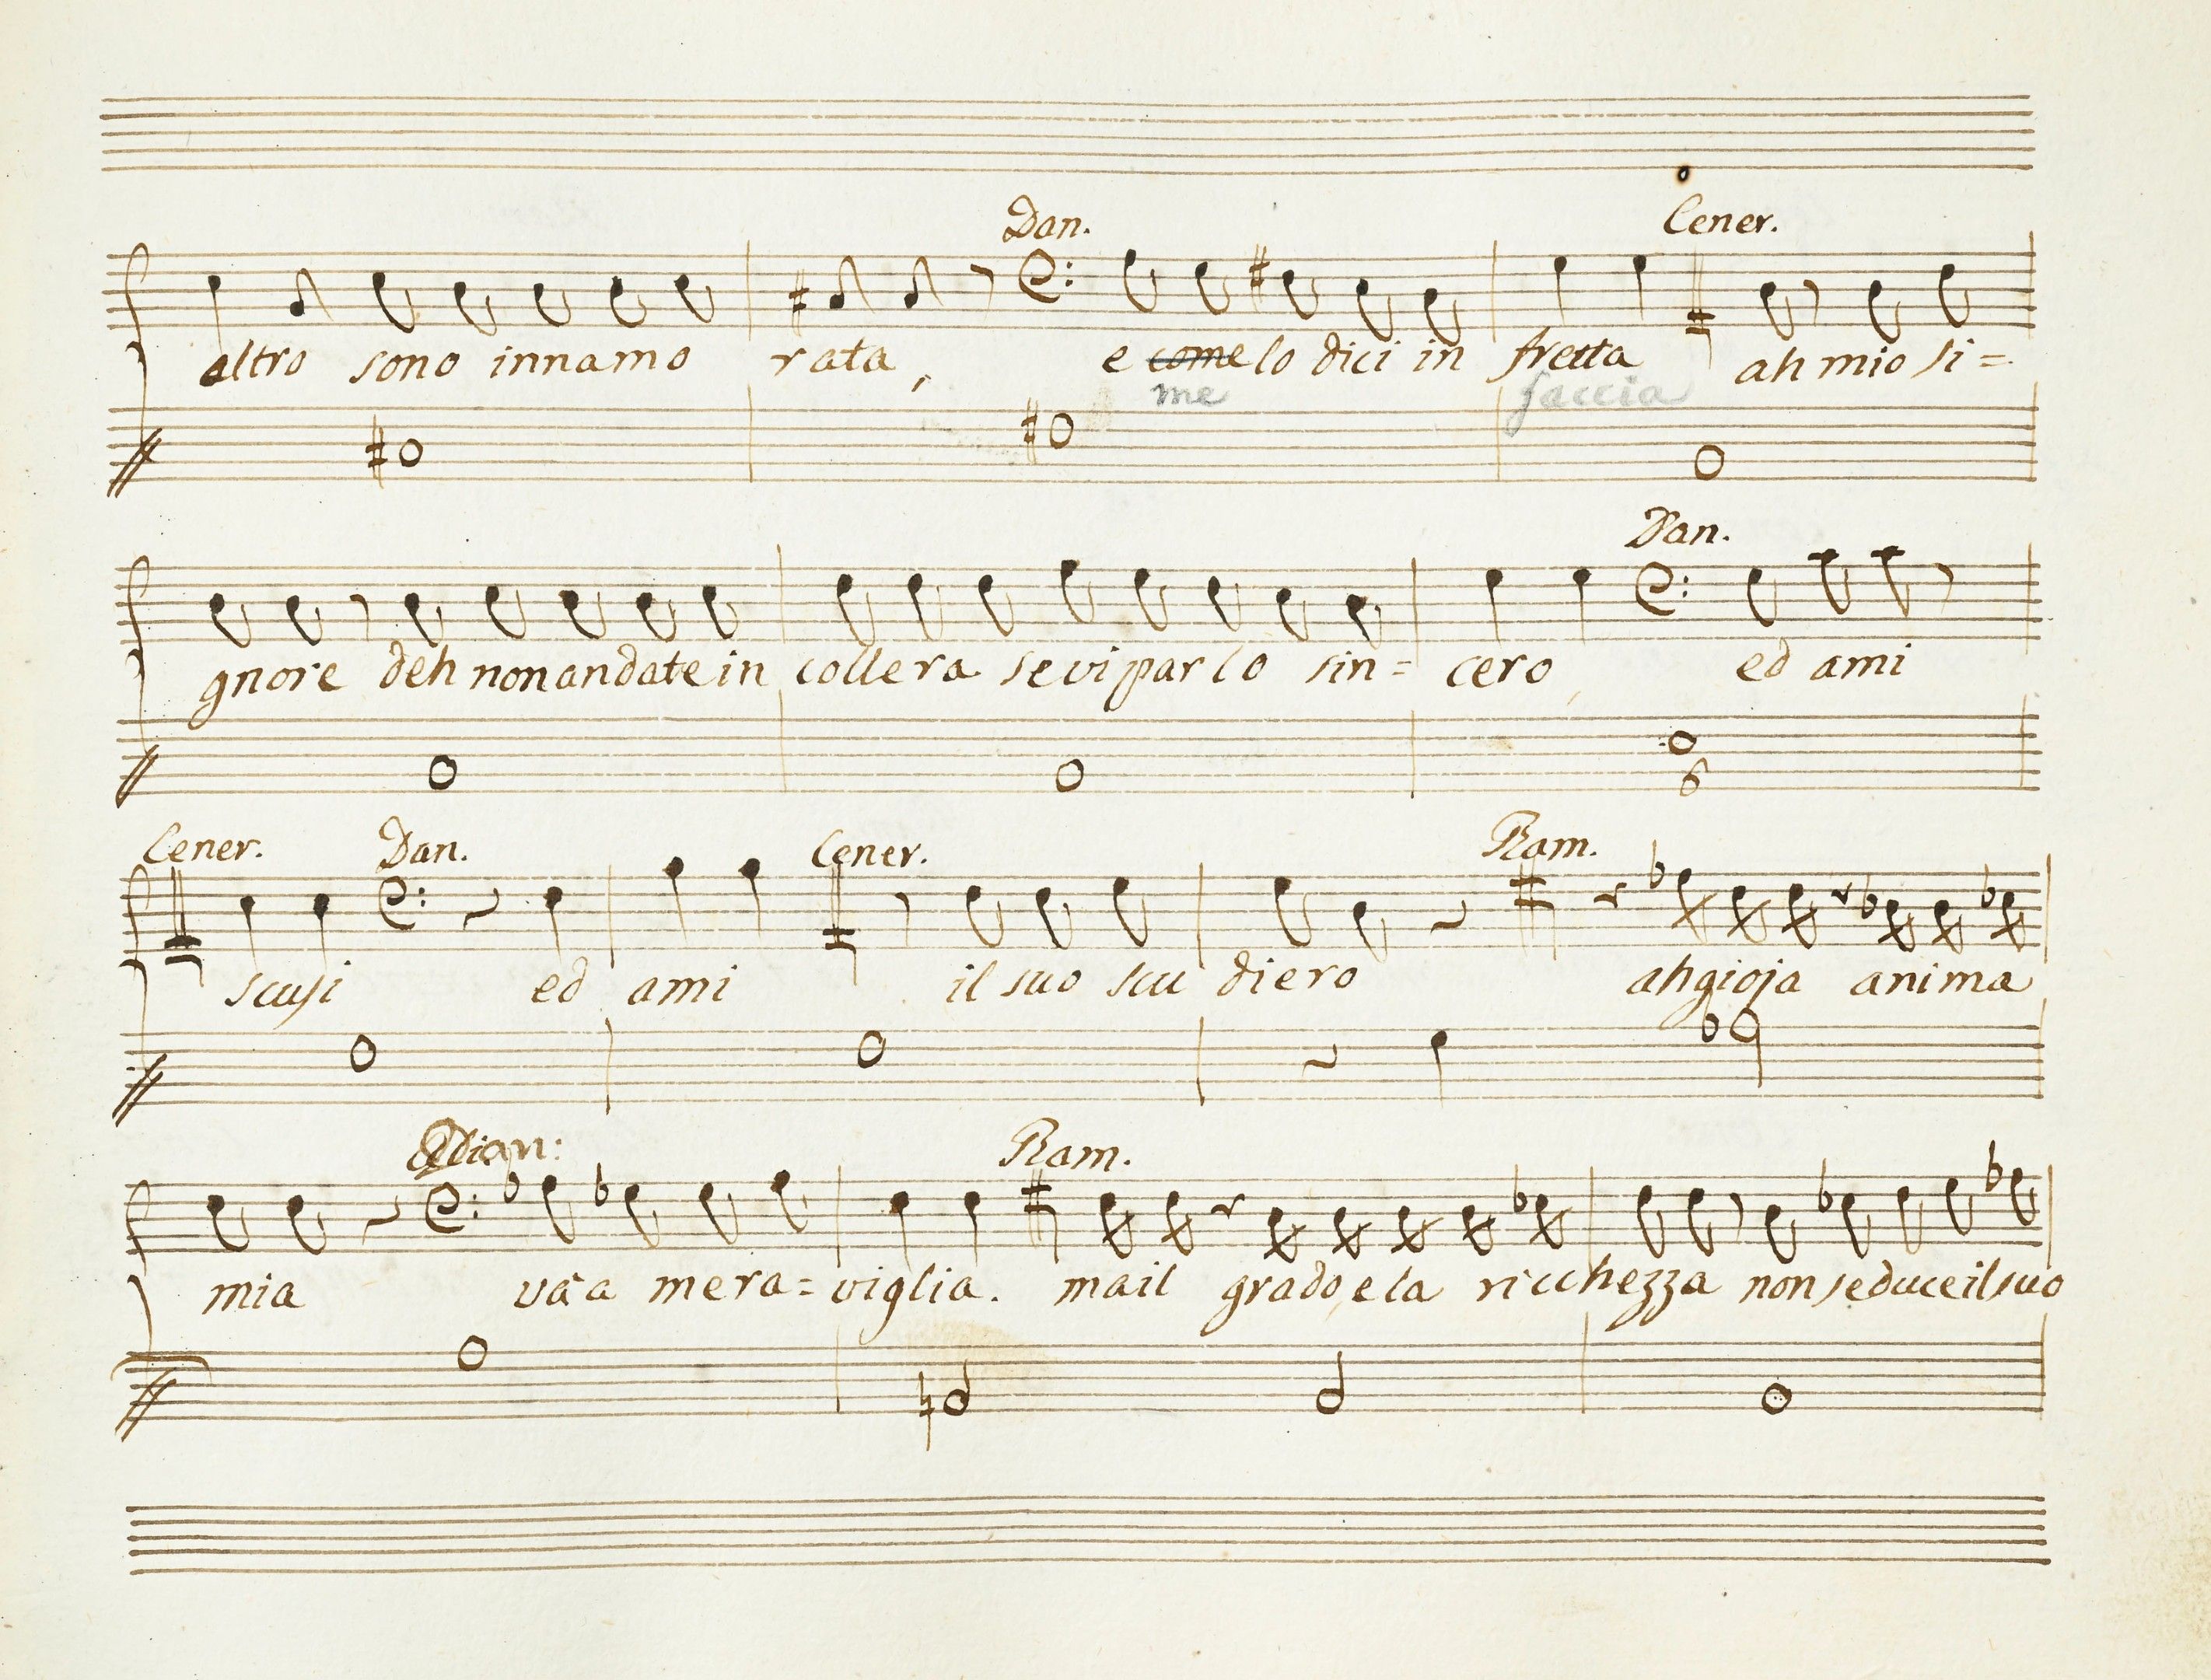 Dan. Cener.
altro sono innamo rata, e come lo dici in fretta ah mio si=
me faccia
Dan.
gnore deh non andate in collera se vi parlo sin= cero ed ami
6
Cener. Dan. Cener. Ram.
scusi ed ami il suo scu diero ah gioja anima
Ram.
mia và a mera= viglia. ma il grado e la ricchezza non seduce il suo